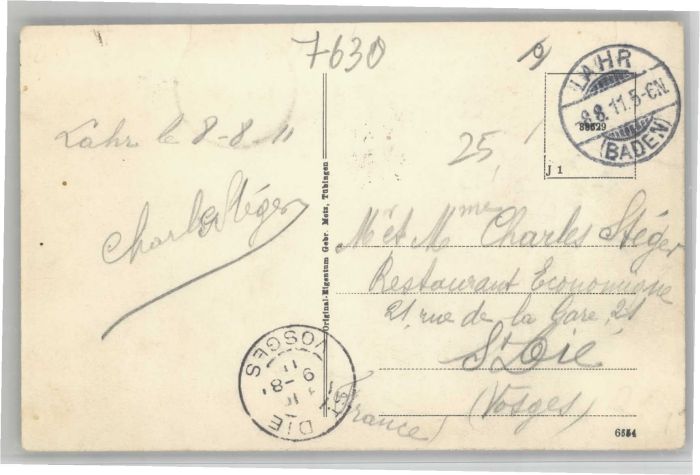 7630
LAHR
8.8.11.5-6N.
(BADEN)
39529
J 1
Lahr le 8-8 11
25
Charles Stéger
Original-Eigentum Gebr. Metz, Tübingen
Mr et Mme Charles Stéger
Restaurant Economique
21, rue de la Gare, 21
St Dié
(Vosges)
(France)
ST DIE
9-8
11
VOSGES
6554